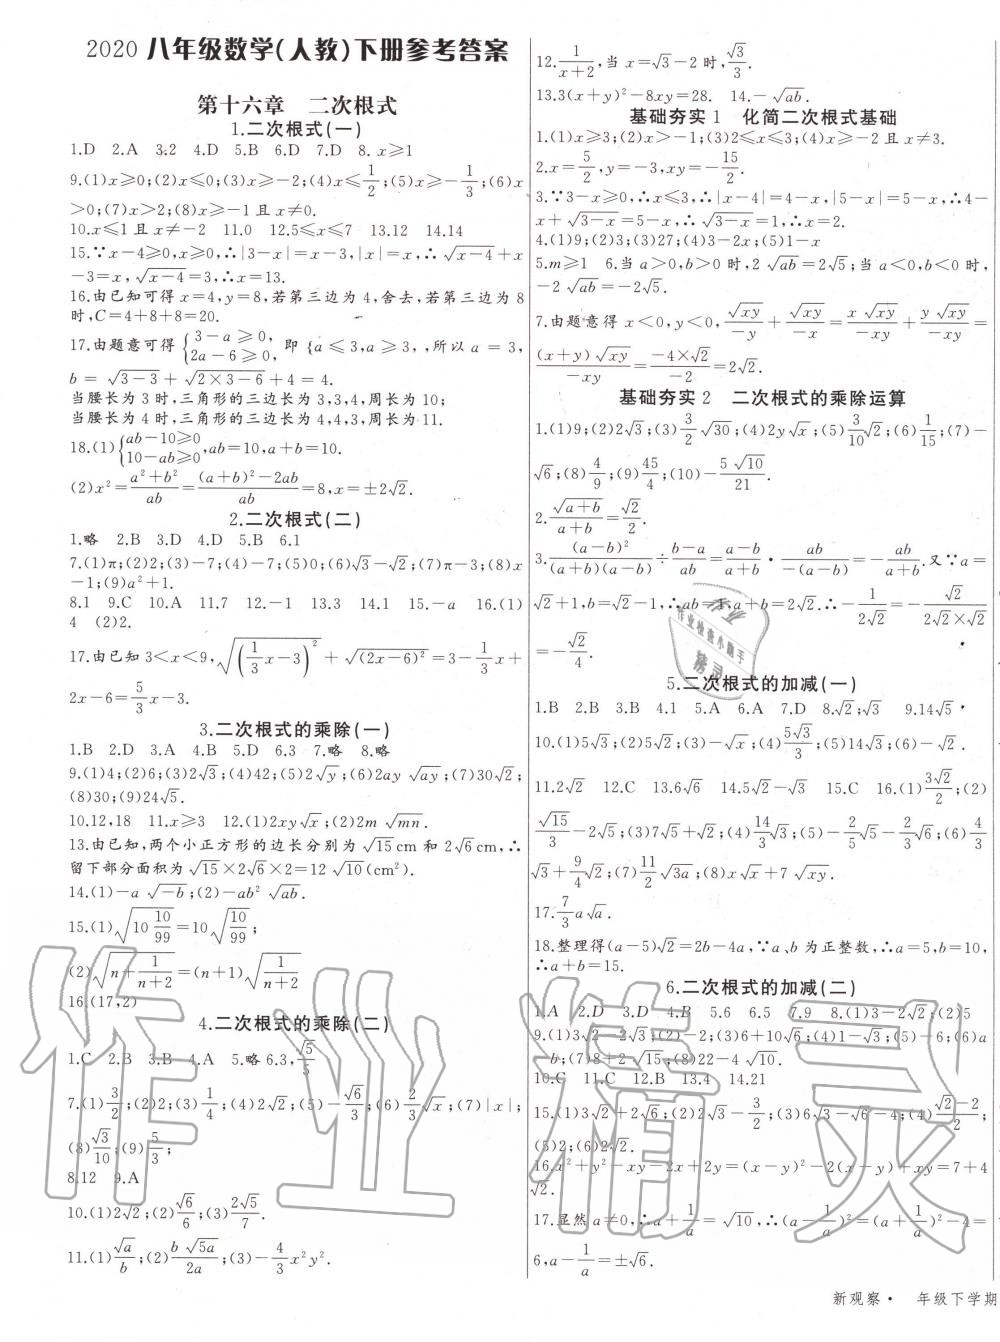 2020 八年级数学(人教)下册参考答案
第十六章 二次根式
1.二次根式(一)
1.D 2.A 3.2 4.D 5.B 6.D 7.D 8.x⩾1
9.(1)x⩾0;(2)x⩽0;(3)x⩾-2;(4)x⩽1/2;(5)x⩾-1/3;(6)x
>0;(7)x>2;(8)x⩾-1且x≠0.
10.x⩽1且x≠-2 11.0 12.5⩽x⩽7 13.12 14.14
15.∵x-4⩾0,x⩾0,∴|3-x|=x-3,|x|=x,∴√(x-4)+x
-3=x,√(x-4)=3,∴x=13.
16.由已知可得x=4,y=8,若第三边为4,舍去,若第三边为8
时,C=4+8+8=20.
17.由题意可得{3-a⩾0,2a-6⩾0,即{a⩽3,a⩾3,,所以a=3,
b=√(3-3)+√(2×3-6)+4=4.
当腰长为3时,三角形的三边长为3,3,4,周长为10;
当腰长为4时,三角形的三边长为4,4,3,周长为11.
18.(1){ab-10⩾0 10-ab⩾0,ab=10,a+b=10.
(2)x²=(a²+b²)/ab=((a+b)²-2ab)/ab=8,x=±2√2.
2.二次根式(二)
1.略 2.B 3.D 4.D 5.B 6.1
7.(1)π;(2)2;(3)-7;(4)-7;(5)0;(6)√3-√2;(7)π-3;(8)x
-1;(9)a²+1.
8.1 9.C 10.A 11.7 12.-1 13.3 14.1 15.-a 16.(1)
4 (2)2.
17.由已知3<x<9,√((1/3x-3)²)+√((2x-6)²)=3-1/3x+
2x-6=5/3x-3.
3.二次根式的乘除(一)
1.B 2.D 3.A 4.B 5.D 6.3 7.略 8.略
9.(1)4;(2)6;(3)2√3;(4)42;(5)2√y;(6)2ay√ay;(7)30√2;
(8)30;(9)24√5.
10.12,18 11.x⩾3 12.(1)2xy√x;(2)2m√mn.
13.由已知,两个小正方形的边长分别为√15cm和2√6cm,∴
留下部分面积为√15×2√6×2=12√10(cm²).
14.(1)-a√-b;(2)-ab²√ab.
15.(1)√(10 10/99)=10√(10/99);
(2)√(n+1/(n+2))=(n+1)√(1/(n+2))
16.(17,2)
4.二次根式的乘除(二)
1.C 2.B 3.B 4.A 5.略 6.3,√5/5
7.(1)3/2;(2)2;(3)1/4;(4)2√2;(5)-√6/3;(6)2/3√x;(7)|x|;
(8)√3/10;(9)5/3;
8.12 9.A
10.(1)2√2;(2)√6/6;(3)2√5/7.
11.(1)√a/b;(2)b√5a/2a;(3)-4/3x²y².
12.1/(x+2),当x=√3-2时,√3/3.
13.3(x+y)²-8xy=28. 14.-√ab.
基础夯实1 化简二次根式基础
1.(1)x⩾3;(2)x>-1;(3)2⩽x⩽3;(4)x⩾-2且x≠3.
2.x=5/2,y=-3,xy=-15/2.
3.∵3-x⩾0,∴x⩽3,∴|x-4|=4-x,|5-x|=5-x,∴4-
x+√(3-x)=5-x,∴√(3-x)=1,∴x=2.
4.(1)9;(2)3;(3)27;(4)3-2x;(5)1-x
5.m⩾1 6.当a>0,b>0时,2√ab=2√5;当a<0,b<0时,
-2√ab=-2√5.
7.由题意得x<0,y<0,√xy/-y+√xy/-x=x√xy/-xy+y√xy/-xy=
(x+y)√xy/-xy=-4×√2/-2=2√2.
基础夯实2 二次根式的乘除运算
1.(1)9;(2)2√3;(3)3/2√30;(4)2y√x;(5)3/10√2;(6)1/15;(7)-
√6;(8)4/9;(9)45/4;(10)-5√10/21.
2.√(a+b)/(a+b)=√2/2.
3.(a-b)²/(a+b)(a-b)÷(b-a)/ab=(a-b)/(a+b)·ab/-(a-b)=-ab/(a+b).又∵a=
√2+1,b=√2-1,∴ab=1,a+b=2√2.∴-1/2√2=-√2/(2√2×√2)
=-√2/4.
5.二次根式的加减(一)
1.B 2.B 3.B 4.1 5.A 6.A 7.D 8.√2;√3 9.14√5
10.(1)5√3;(2)5√2;(3)-√x;(4)5√3/3;(5)14√3;(6)-√2.
11.2√2 12.C 13.6√6 14.5√2-√3 15.C 16.(1)3√2/2;(2)
√15/3-2√5;(3)7√5+√2;(4)14/3√3;(5)-2/5√5-2/3√6;(6)4/3
√3+9/4√2;(7)11/2√3a;(8)x√x+7√xy.
17.7/3a√a.
18.整理得(a-5)√2=2b-4a,∵a、b为正整数,∴a=5,b=10,
∴a+b=15.
6.二次根式的加减(二)
1.A 2.D 3.D 4.B 5.6 6.5 7.9 8.(1)3-2√2;(2)5
9.(1)3√2-2√3;(2)-2;(3)6+10√6;(4)1-√3;(5)-6;(6)a
-b;(7)8+2√15;(8)22-4√10.
10.C 11.C 12.B 13.4 14.21
15.(1)3√2+2√6;(2)2√3-3/2;(3)6√3-√6-4;(4)(√2-2)/2;
(5)2;(6)2√2.
16.x²+y²-xy-2x+2y=(x-y)²-2(x-y)+xy=7+4
√2.
17.显然a≠0,∴a+1/a=√10,∴(a-1/a)²=(a+1/a)²-4=
6,a-1/a=±√6.
新观察· 年级下学期
作业精灵
作业检查小助手
精灵